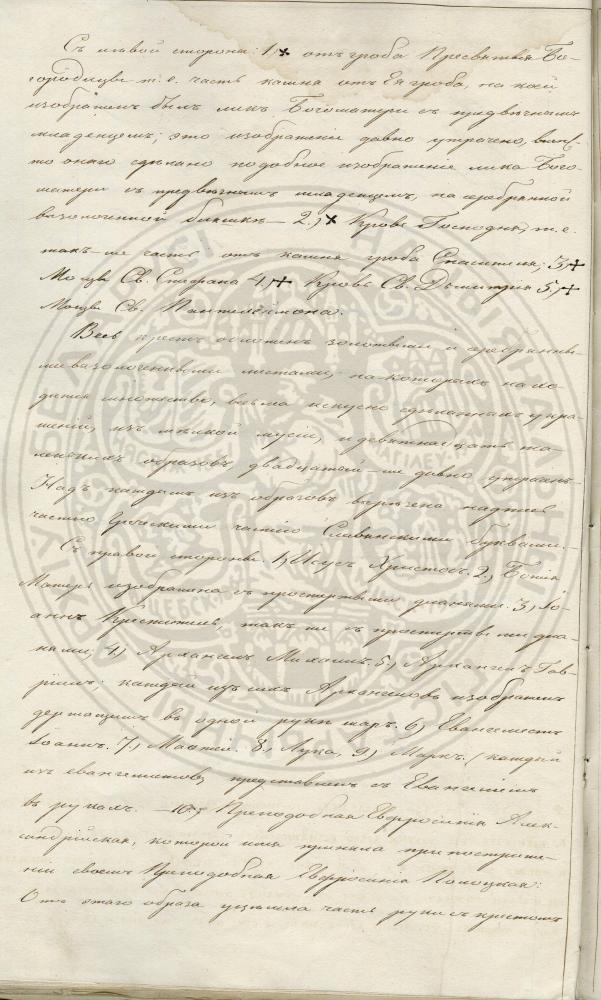 Съ лѣвой стороны: 1,✗ отъ гроба Пресвятыя Бо-
городицы т. е. часть камня отъ Ея гроба, на коей
изображенъ былъ ликъ Богоматери съ предвѣчнымъ
младенцемъ; это изображеніе давно утрачено, вмѣс-
то онаго сдѣлано подобное изображеніе лика Бого-
матери съ предвѣчнымъ младенцемъ, на серебряной
вызолоченной бляшкѣ — 2,) ✗ Кровь Господня, т. е.
такъ-же часть отъ камня гроба Спасителя; 3,+
Мощи Св. Стефана 4,+ Кровь Св. Дмитрія 5,+
Мощи Св. Пантелеимона.
Весь крестъ обложенъ золотыми и серебряны-
ми вызолоченными листами, на которыхъ нахо-
дится множество, весьма искусно сдѣланныхъ укра-
шеній, изъ мѣлкой мусіи, и девятнадцать ма-
ленькихъ образовъ двадцатый-же давно утраченъ.
Надъ каждымъ изъ образовъ вырѣзана надпись
частію Греческими частію Славянскими буквами. —
Съ правой стороны. 1,) Исусъ Христосъ. 2,) Божія
Матерь изображена съ простертыми дланями. 3,) Іо-
аннъ Креститель, такъ же съ простертыми дла-
нями; 4,) Архангелъ Михаилъ. 5,) Архангелъ Гав-
ріилъ; каждый изъ ихъ Архангеловъ изображенъ
держащимъ въ одной рукѣ шаръ. 6,) Евангелистъ
Іоаннъ. 7,) Матѳій. 8,) Лука, 9,) Маркъ. (каждый
изъ евангелистовъ представленъ съ Евангеліемъ
въ рукахъ. — 10,) Преподобная Евфросинія Алек-
сандрійская, которой имя приняла при постриже-
ніи своемъ Преподобная Евфросинія Полоцкая:
Отъ этаго образа уцѣлѣла часть руки съ крестомъ